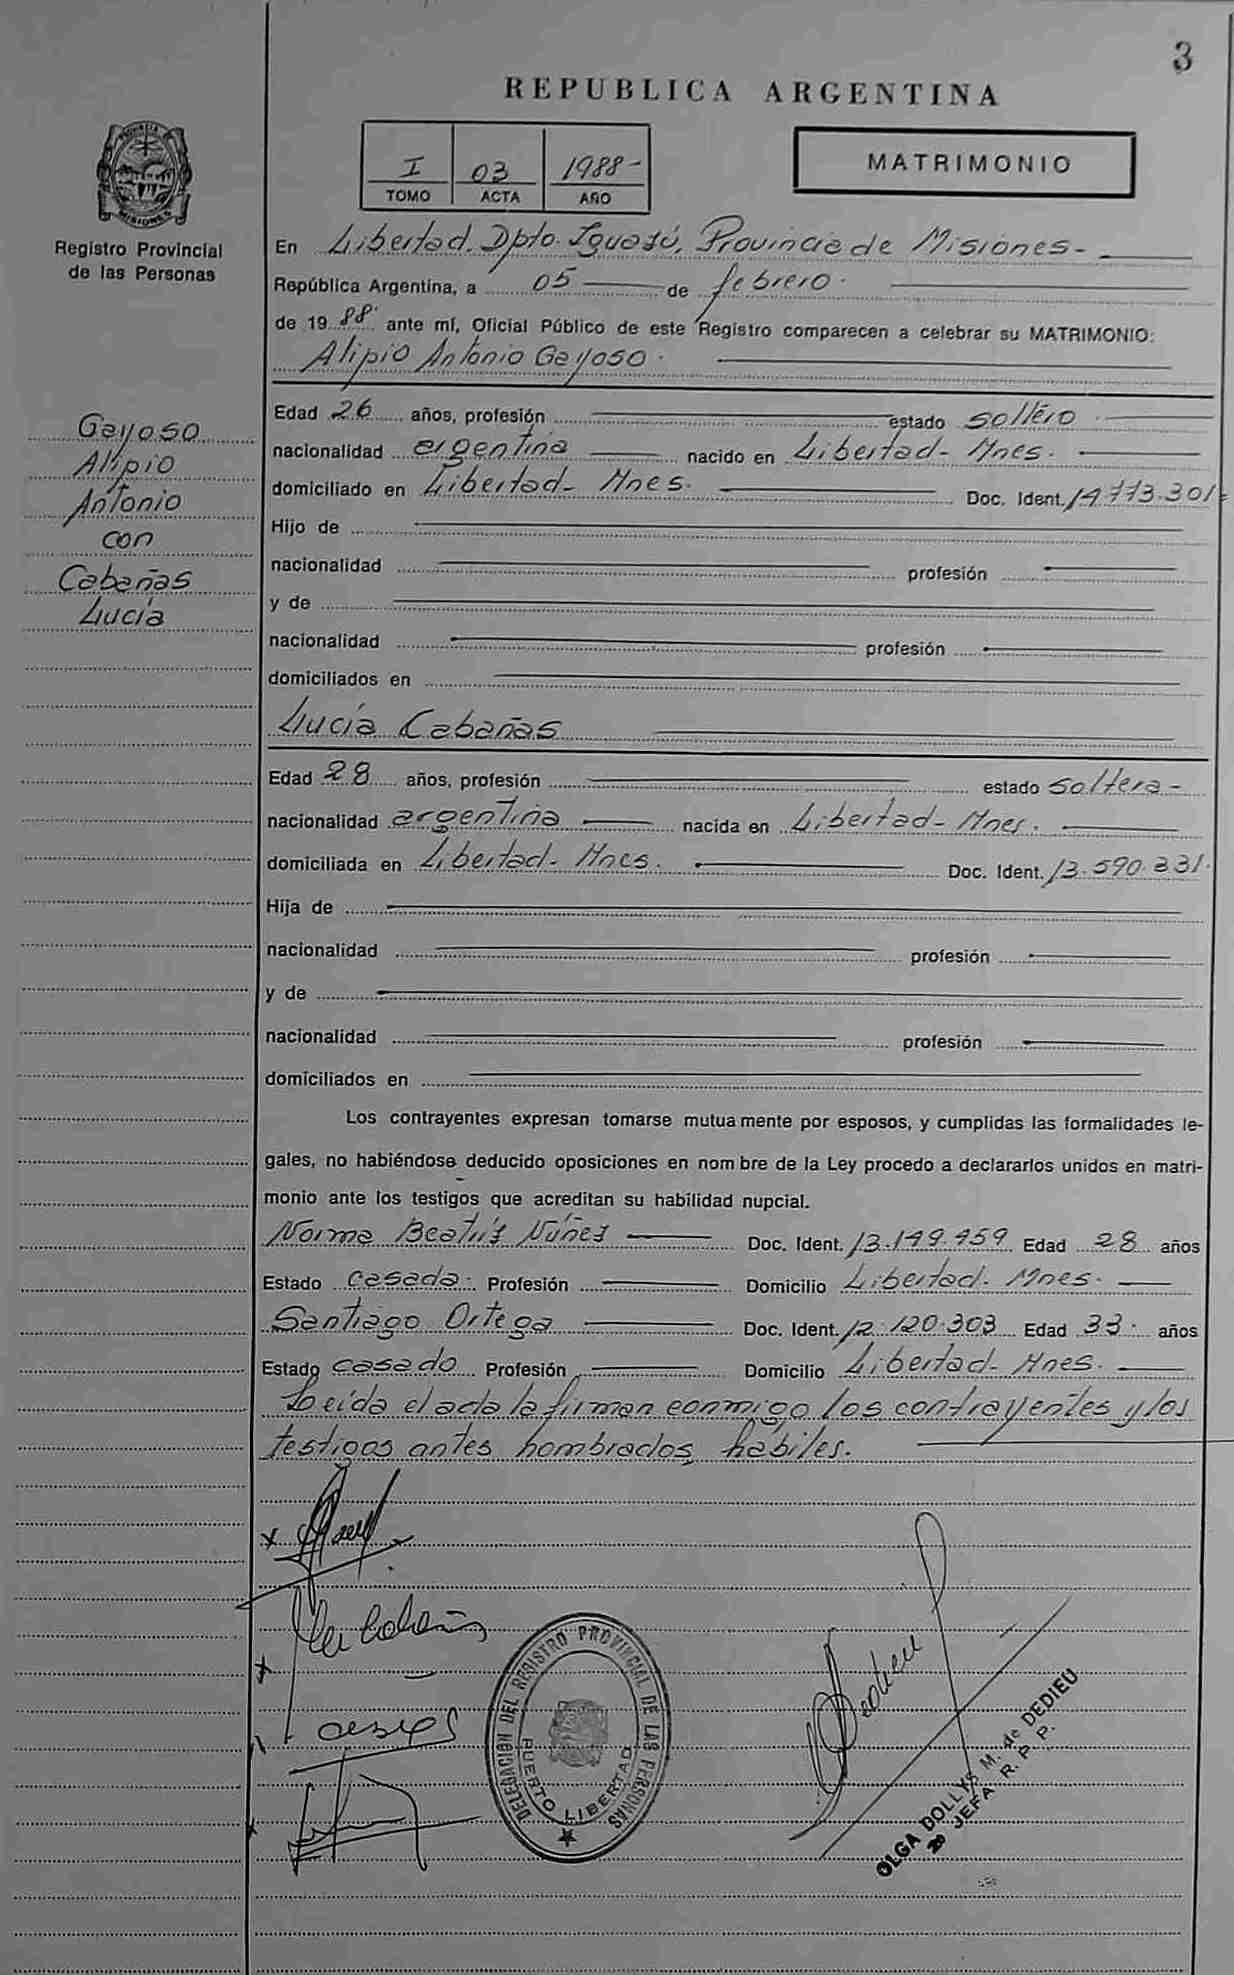 3
REPUBLICA ARGENTINA
I 03 1988-
TOMO ACTA AÑO
MATRIMONIO
PROVINCIA DE MISIONES
Registro Provincial
de las Personas
En Libertad. Dpto. Iguazú, Provincia de Misiones-
República Argentina, a 05 de febrero.
de 19 88 ante mí, Oficial Público de este Registro comparecen a celebrar su MATRIMONIO:
Alipio Antonio Gayoso.
Gayoso
Alipio
Antonio
con
Cabañas
Lucía
Edad 26 años, profesión estado soltero
nacionalidad argentina nacido en Libertad- Mnes.
domiciliado en Libertad- Mnes. Doc. Ident. 14.773.301
Hijo de
nacionalidad profesión
y de
nacionalidad profesión
domiciliados en
Lucía Cabañas
Edad 28 años, profesión estado soltera-
nacionalidad argentina nacida en Libertad- Mnes.
domiciliada en Libertad- Mnes. Doc. Ident. 13.590.331.
Hija de
nacionalidad profesión
y de
nacionalidad profesión
domiciliados en
Los contrayentes expresan tomarse mutuamente por esposos, y cumplidas las formalidades le-
gales, no habiéndose deducido oposiciones en nombre de la Ley procedo a declararlos unidos en matri-
monio ante los testigos que acreditan su habilidad nupcial.
Norma Beatríz Núñez Doc. Ident. 13.149.959 Edad 28 años
Estado casada. Profesión Domicilio Libertad. Mnes.
Santiago Ortega Doc. Ident. 12.120.303 Edad 33. años
Estado casado Profesión Domicilio Libertad- Mnes.
Leída el acta la firman conmigo los contrayentes y los
testigos antes nombrados, hábiles.
Cabañas
DELEGACIÓN DEL REGISTRO PROVINCIAL DE LAS PERSONAS
PUERTO LIBERTAD
OLGA DOLLYS M. de DEDIEU
JEFA R. P. P.